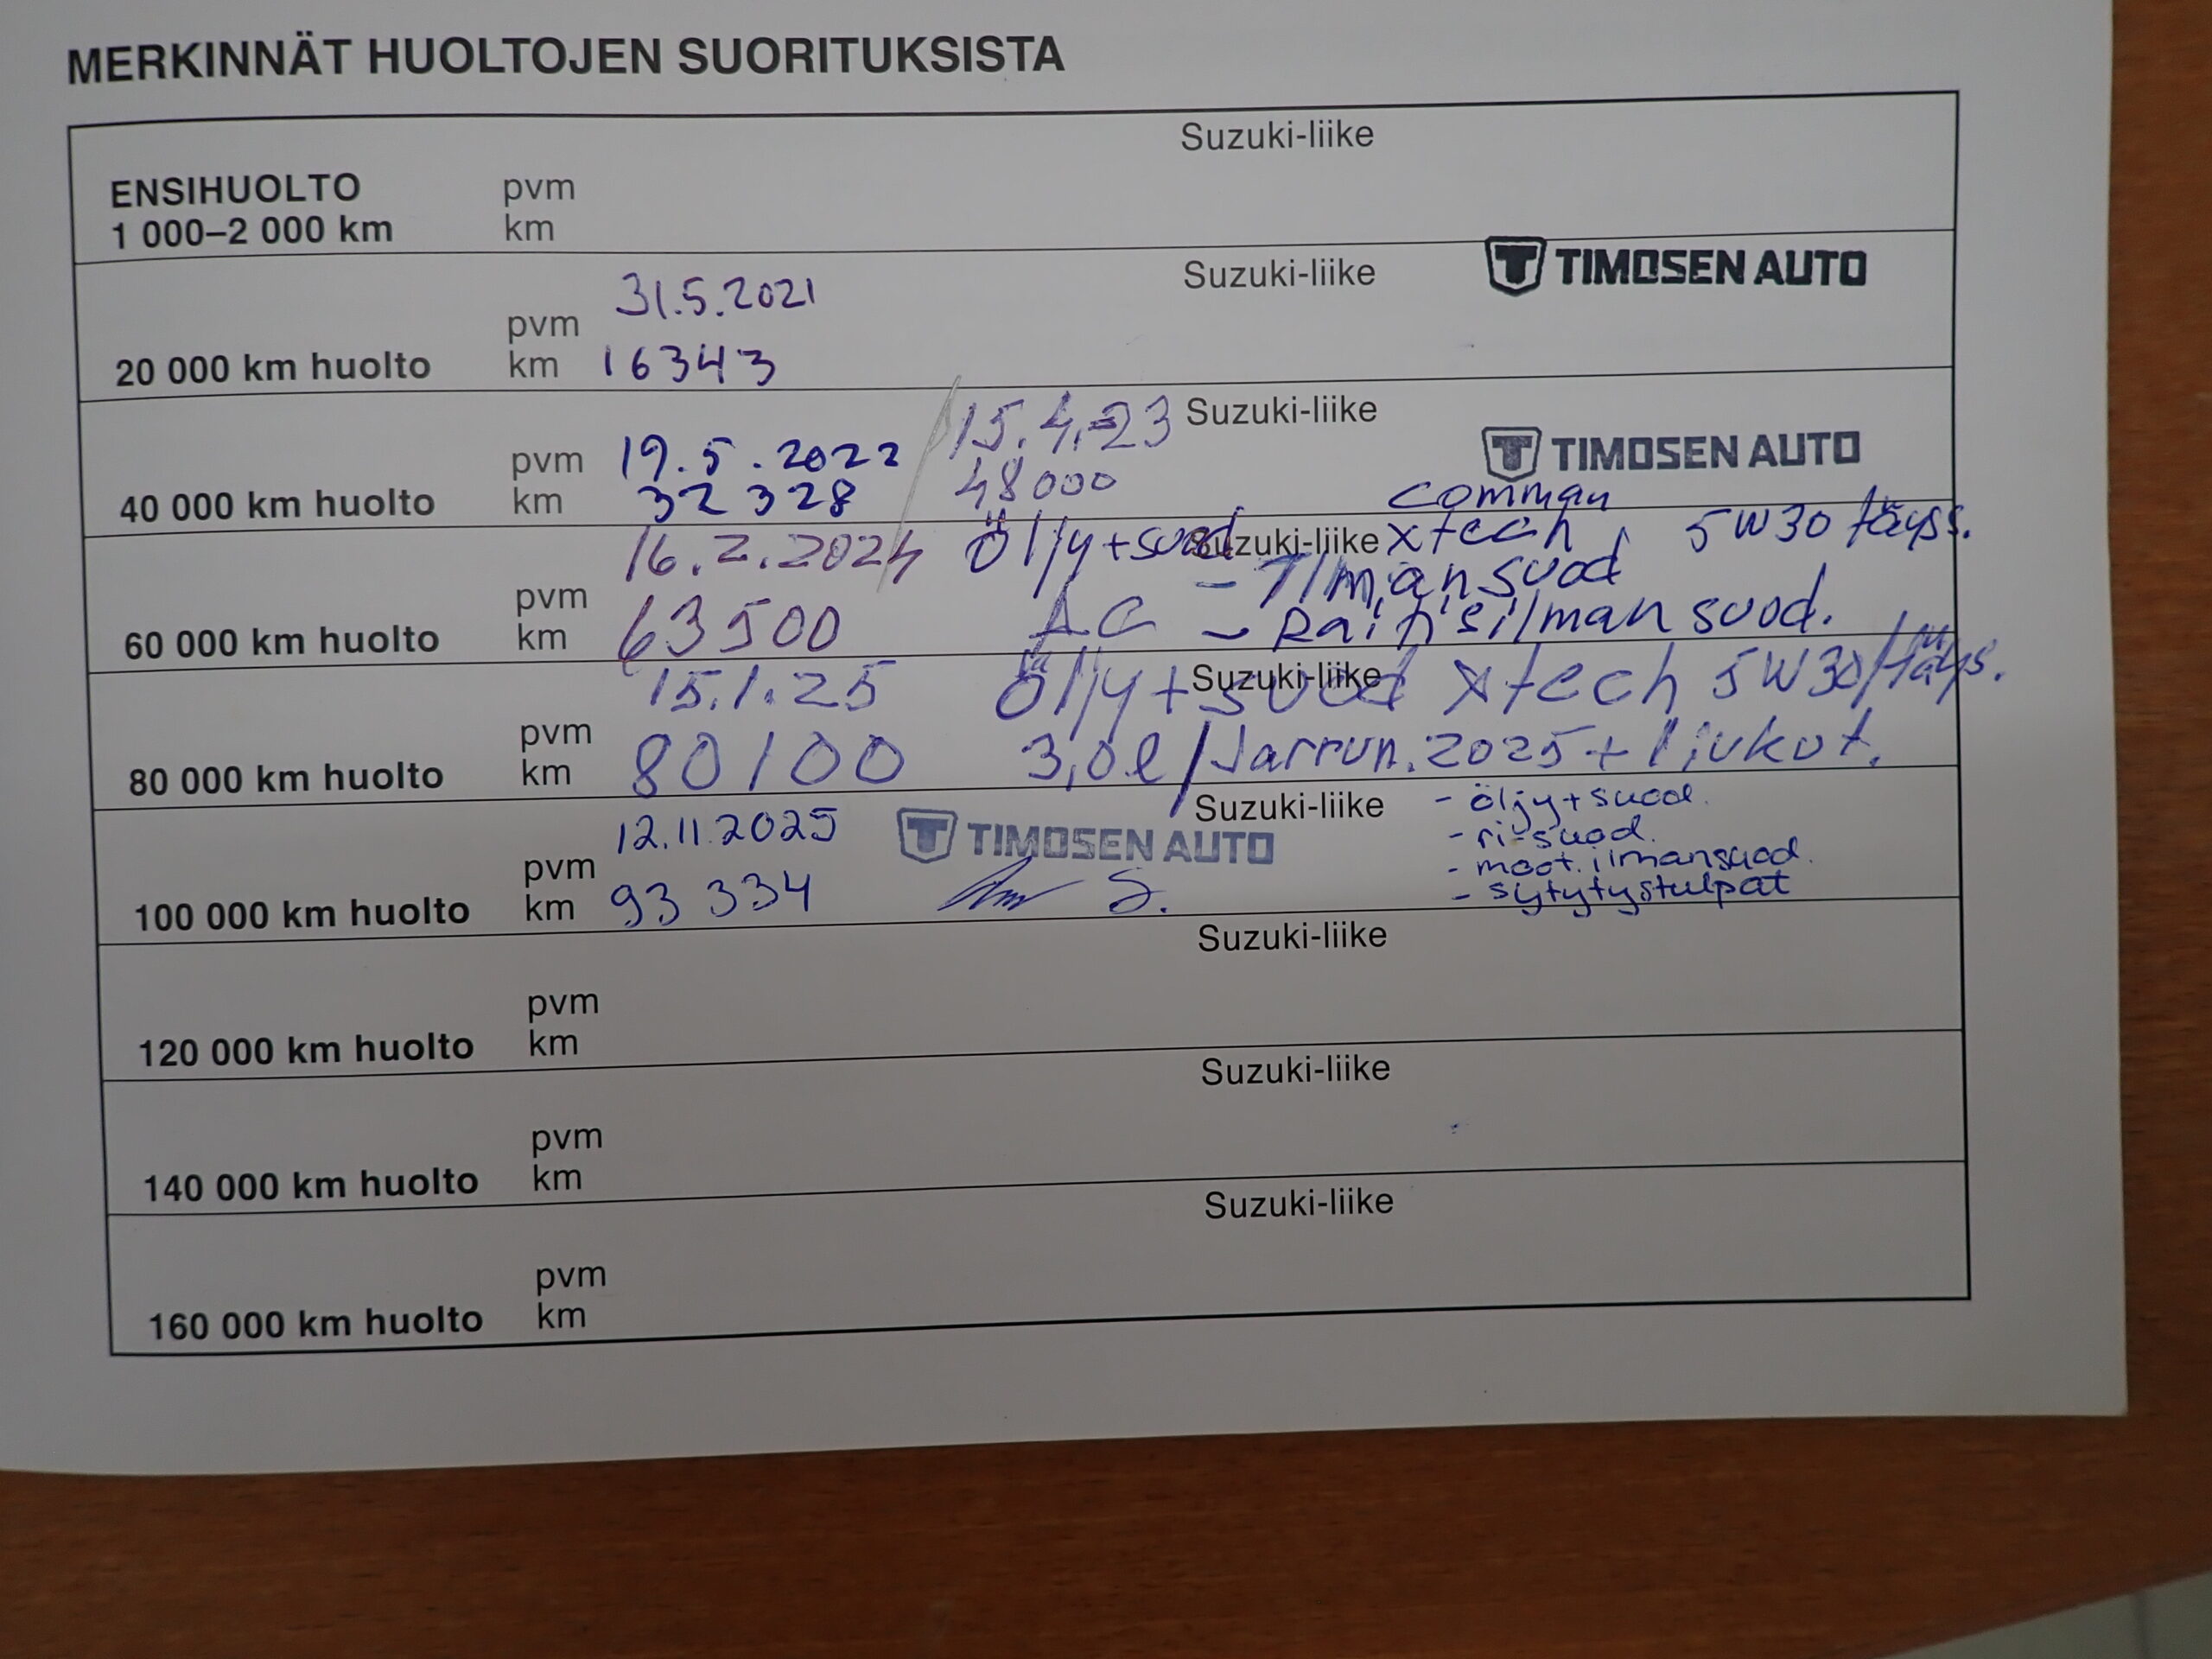 MERKINNÄT HUOLTOJEN SUORITUKSISTA
Suzuki-liike
ENSIHUOLTO pvm
1 000–2 000 km km
Suzuki-liike TIMOSEN AUTO
31.5.2021
pvm
20 000 km huolto km 16343
15.4.23 Suzuki-liike
pvm 19.5.2022 / TIMOSEN AUTO
40 000 km huolto km 32 328 48000
comman
16.2.2024 Öljy+suod Suzuki-liike xtech 5W30 täyss.
- Ilmansuod
pvm AC - Raitisilman suod.
60 000 km huolto km 63500
15.1.25 Öljy+suod Suzuki-liike xtech 5W30/täys.
pvm
80 000 km huolto km 80100 3,0l/Jarrun.2025+liukot.
12.11.2025 TIMOSEN AUTO Suzuki-liike - öljy+suod.
- ri-suod.
pvm - moot.ilmansuod.
100 000 km huolto km 93 334 S. - sytytystulpat
Suzuki-liike
pvm
120 000 km huolto km
Suzuki-liike
pvm
140 000 km huolto km
Suzuki-liike
pvm
160 000 km huolto km